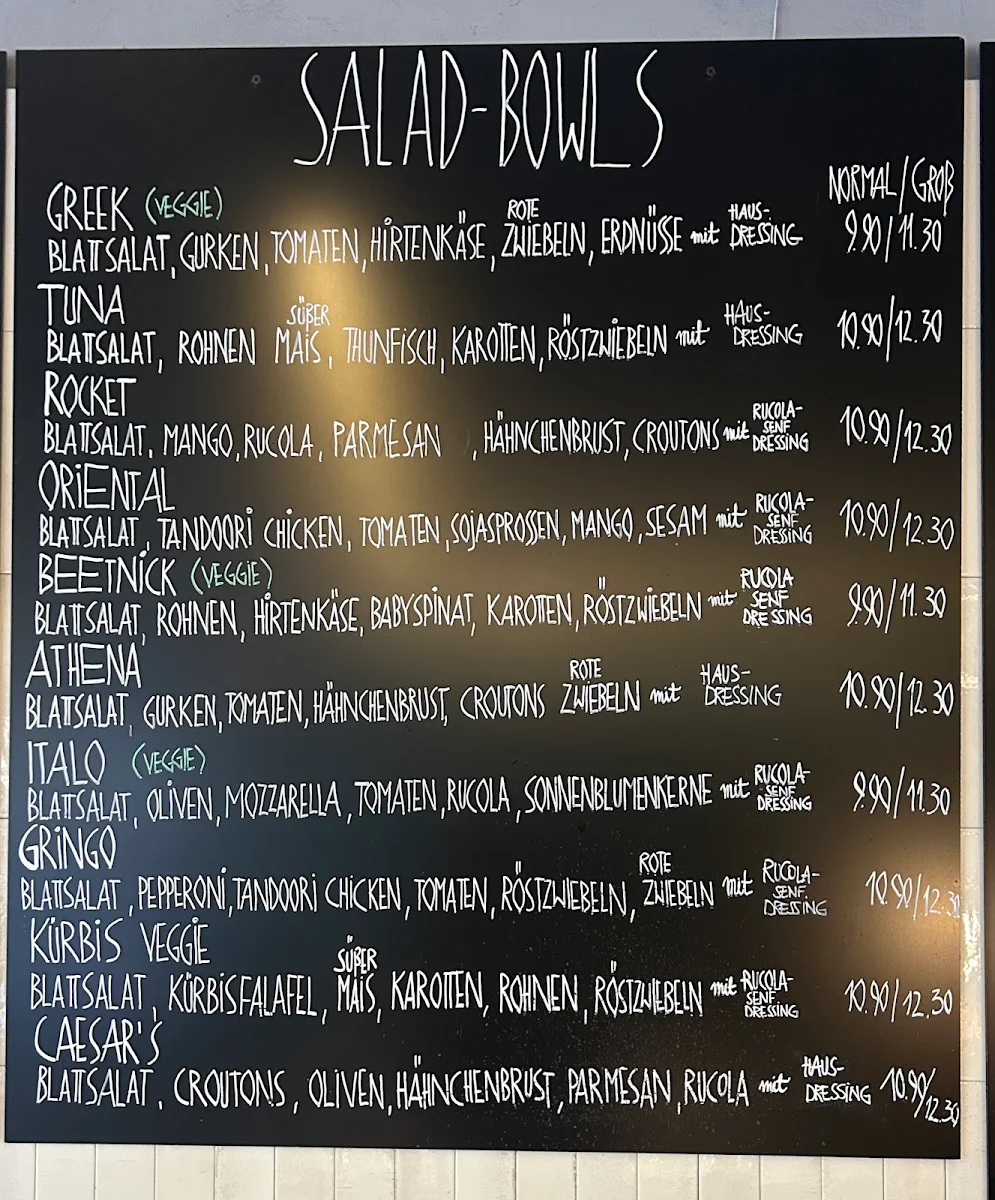 SALAD-BOWLS
NORMAL/GROß
GREEK (VEGGIE)
BLATTSALAT, GURKEN, TOMATEN, HIRTENKÄSE, ROTE ZWIEBELN, ERDNÜSSE mit HAUS-DRESSING 9.90/11.30
TUNA
BLATTSALAT, ROHNEN SÜßER MAIS, THUNFISCH, KAROTTEN, RÖSTZWIEBELN mit HAUS-DRESSING 10.90/12.30
ROCKET
BLATTSALAT, MANGO, RUCOLA, PARMESAN , HÄHNCHENBRUST, CROUTONS mit RUCOLA-SENF DRESSING 10.90/12.30
ORIENTAL
BLATTSALAT, TANDOORI CHICKEN, TOMATEN, SOJASPROSSEN, MANGO, SESAM mit RUCOLA-SENF DRESSING 10.90/12.30
BEETNICK (VEGGIE)
BLATTSALAT, ROHNEN, HIRTENKÄSE, BABYSPINAT, KAROTTEN, RÖSTZWIEBELN mit RUCOLA SENF DRESSING 9.90/11.30
ATHENA
BLATTSALAT, GURKEN, TOMATEN, HÄHNCHENBRUST, CROUTONS ROTE ZWIEBELN mit HAUS-DRESSING 10.90/12.30
ITALO (VEGGIE)
BLATTSALAT, OLIVEN, MOZZARELLA, TOMATEN, RUCOLA, SONNENBLUMENKERNE mit RUCOLA-SENF DRESSING 9.90/11.30
GRINGO
BLATTSALAT, PEPPERONI, TANDOORI CHICKEN, TOMATEN, RÖSTZWIEBELN, ROTE ZWIEBELN mit RUCOLA-SENF DRESSING 10.90/12.30
KÜRBIS VEGGIE
BLATTSALAT, KÜRBISFALAFEL, SÜßER MAIS, KAROTTEN, ROHNEN, RÖSTZWIEBELN mit RUCOLA-SENF DRESSING 10.90/12.30
CAESAR'S
BLATTSALAT, CROUTONS, OLIVEN, HÄHNCHENBRUST, PARMESAN, RUCOLA mit HAUS-DRESSING 10.90/12.30